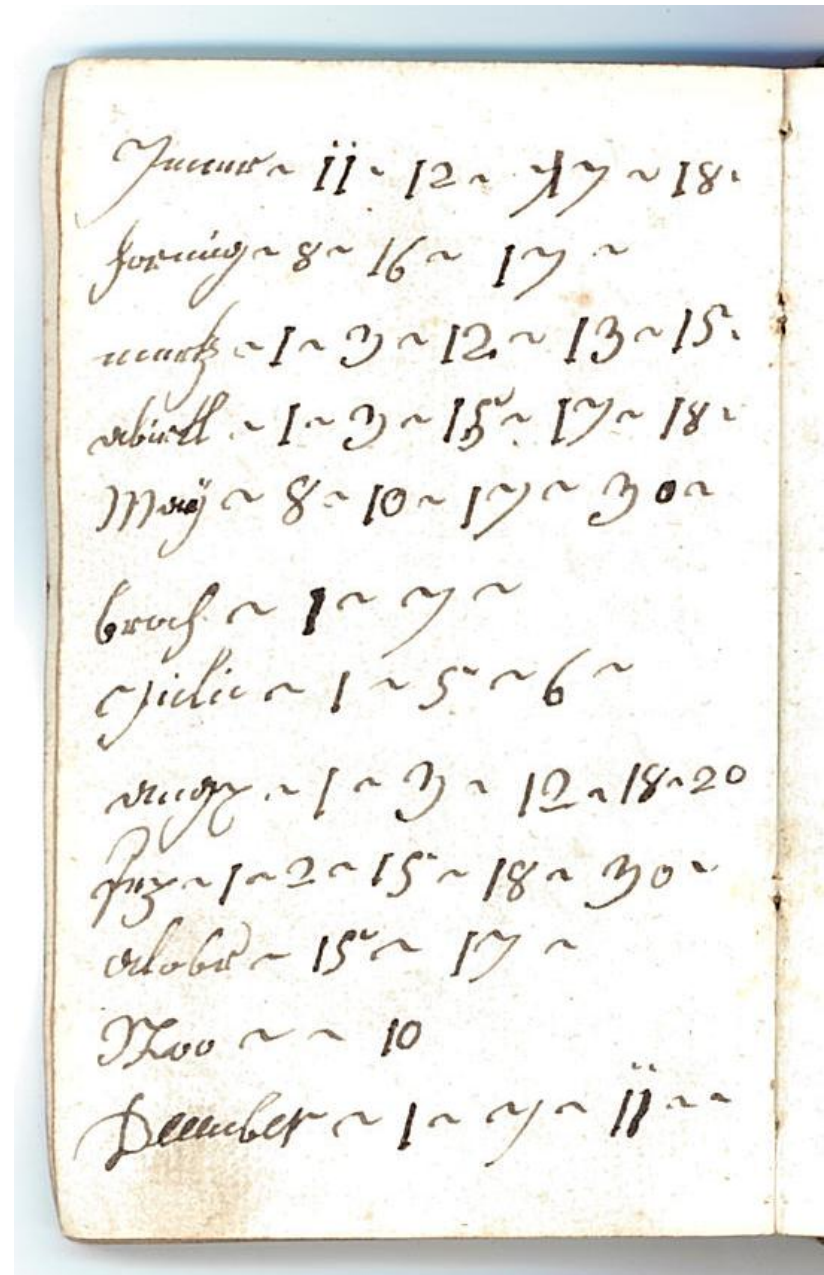 Jenner ~ 11 ~ 12 ~ 17 ~ 18 ~
hornüg ~ 8 ~ 16 ~ 17 ~
mertz ~ 1 ~ 3 ~ 12 ~ 13 ~ 15 ~
abirell ~ 1 ~ 3 ~ 15 ~ 17 ~ 18 ~
Maÿ ~ 8 ~ 10 ~ 17 ~ 30 ~
broch ~ 1 ~ 7 ~
Julie ~ 1 ~ 5 ~ 6 ~
augx ~ 1 ~ 3 ~ 12 ~ 18 ~ 20
~ 1 ~ 2 ~ 15 ~ 18 ~ 30 ~
octobr ~ 15 ~ 17 ~
Nov ~ ~ 10
December ~ 1 ~ 7 ~ 11 ~ ~